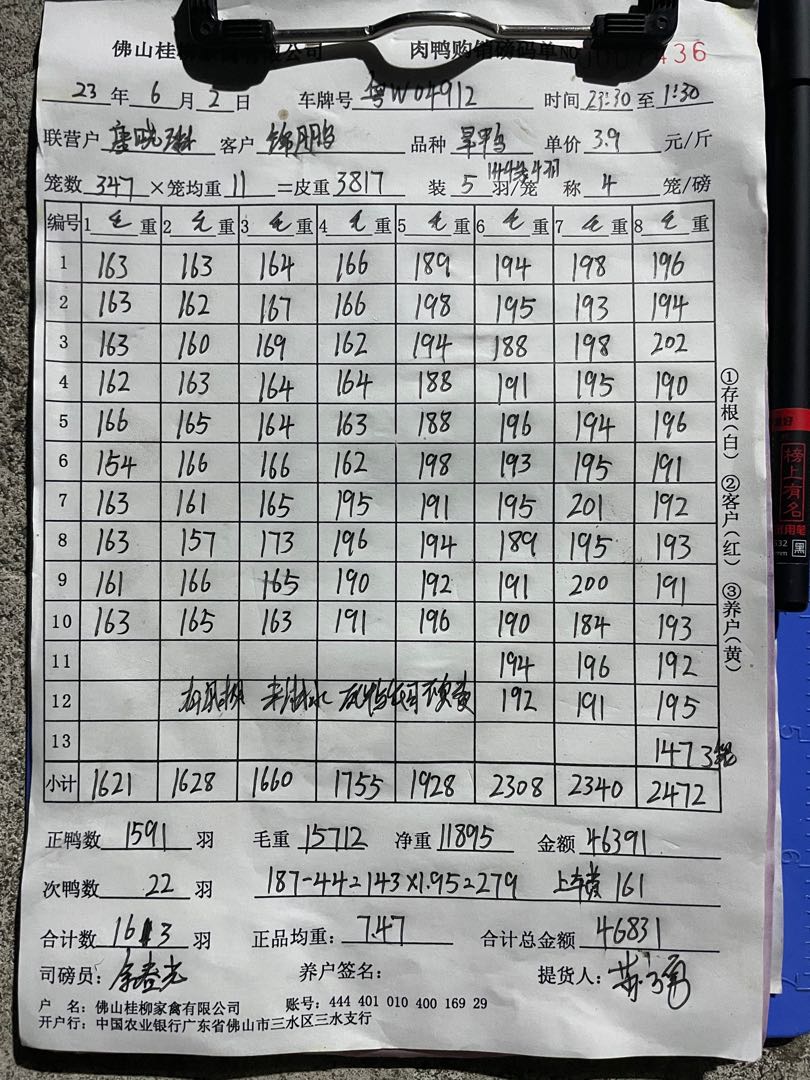 佛山桂柳家禽有限公司 肉鸭购销磅码单NO 436
23 年 6 月 2 日 车牌号 粤W04912 时间 23:30 至 1:30
联营户 客户 锦鹏 品种 旱鸭 单价 3.9 元/斤
笼数 347 ×笼均重 11 =皮重 3817 装 5 羽/笼 称 4 笼/磅
编号 1 毛 重 2 毛 重 3 毛 重 4 毛 重 5 毛 重 6 毛 重 7 毛 重 8 毛 重
1 163 163 164 166 189 194 198 196
2 163 162 167 166 198 195 193 194
3 163 160 169 162 194 188 198 202
4 162 163 164 164 188 191 195 190
5 166 165 164 163 188 196 194 196
6 154 166 166 162 198 193 195 191
7 163 161 165 195 191 195 201 192
8 163 157 173 196 194 189 195 193
9 161 166 165 190 192 191 200 191
10 163 165 163 191 196 190 184 193
11 194 196 192
12 192 191 195
13 147 3笼
小计 1621 1628 1660 1755 1928 2308 2340 2472
正鸭数 1591 羽 毛重 15712 净重 11895 金额 46391
次鸭数 22 羽 187-44=143×1.95=279 上车费 161
合计数 1613 羽 正品均重: 7.47 合计总金额 46831
司磅员: 养户签名: 提货人:
户 名: 佛山桂柳家禽有限公司 账号: 444 401 010 400 169 29
开户行: 中国农业银行广东省佛山市三水区三水支行
①存根(白) ②客户(红) ③养户(黄)
榜上有名
黑